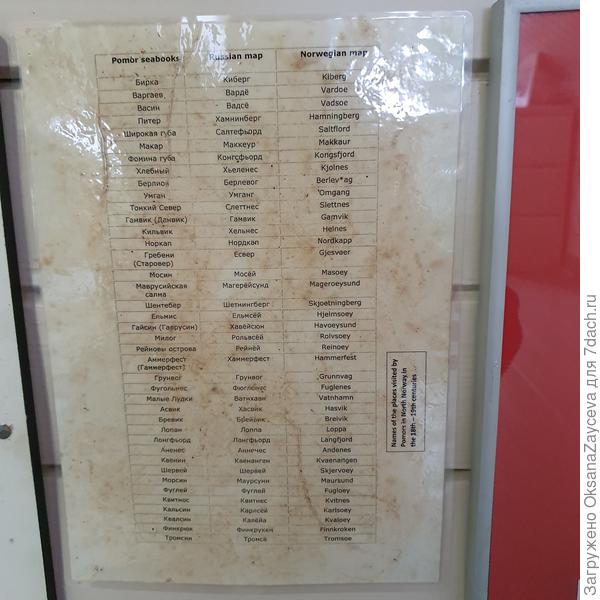 Pomor seabooks Russian map Norwegian map
Бирка Киберг Kiberg
Варгаев Вардё Vardoe
Васин Вадсё Vadsoe
Питер Хамнинберг Hamningberg
Широкая губа Салтефьорд Saltfiord
Макар Маккеур Makkaur
Фомина губа Конгсфьорд Kongsfjord
Хлебный Хьеленес Kjolnes
Берлион Берлевог Berlev*ag
Умган Умганг Omgang
Тонкий Север Слеттнес Slettnes
Гамвик (Данвик) Гамвик Gamvik
Кильвик Хельнес Helnes
Норкап Нордкап Nordkapp
Гребени Есвер Gjesvoer
(Старовер)
Мосин Мосёй Masoey
Маврусийская Магерёйсунд Mageroeysund
салма
Шентебер Шетнингберг Skjoetningberg
Ельмис Ельмсёй Hjelmsoey
Гайсин (Гаврусин) Хавёйсюн Havoeysund
Милог Рольвсёй Rolvsoey
Рейновы острова Рейнёй Reinoey
Аммерфест Хаммерфест Hammerfest
(Гаммерфест)
Грунвог Грунвог Grunnvag
Фугольнес Фюгленес Fuglenes
Малые Лудки Ватнхавн Vatnhamn
Асвик Хасвик Hasvik
Бревик Брейвик Breivik
Лопан Лоппа Loppa
Лонгфьорд Лангфьорд Langfjord
Аненес Аннечес Andenes
Квенин Квенанген Kvaenangen
Шервей Шервей Skjervoey
Морсин Маурсунн Maursund
Фуглей Фуглей Fugloey
Квитнос Квитнес Kvitnes
Кальсин Карлсёй Karlsoey
Квалсин Калёйа Kvaloey
Финкрюк Финкрукен Finnkroken
Тромсин Тромсё Tromsoe
Names of the places visited by
Pomors in North Norway in
the 18th – 19th centuries
Загружено OksanaZayceva для 7dach.ru